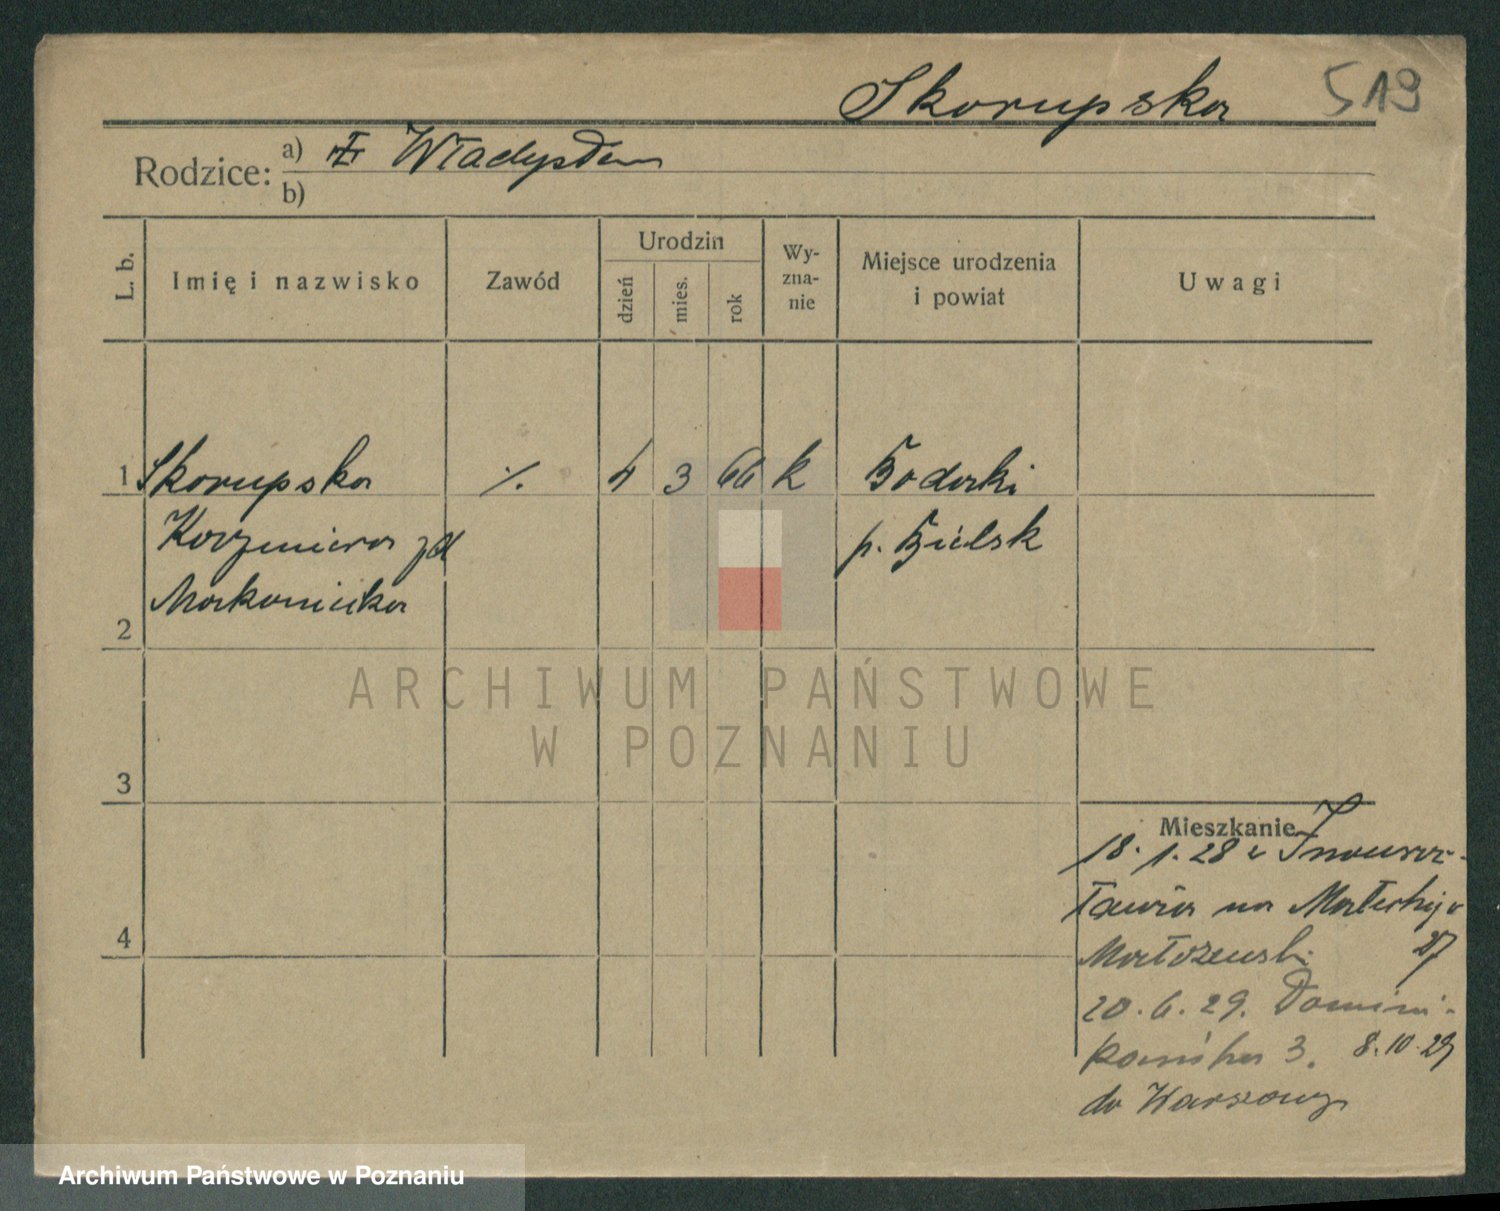 Skorupska
519
Rodzice: a) Władysław
b)
L. b.
Imię i nazwisko
Zawód
Urodzin
dzień
mies.
rok
Wy-
zna-
nie
Miejsce urodzenia
i powiat
Uwagi
1 Skorupska ./. 4 3 66 k Bodaki
Kazimiera p. Bielsk
2
3
4
Mieszkanie
18. 1. 28 z Inowroc-
ławia na
27
20. 6. 29. Domini-
kańska 3. 8.10.29
do Warszawy
ARCHIWUM PAŃSTWOWE
W POZNANIU
Archiwum Państwowe w Poznaniu